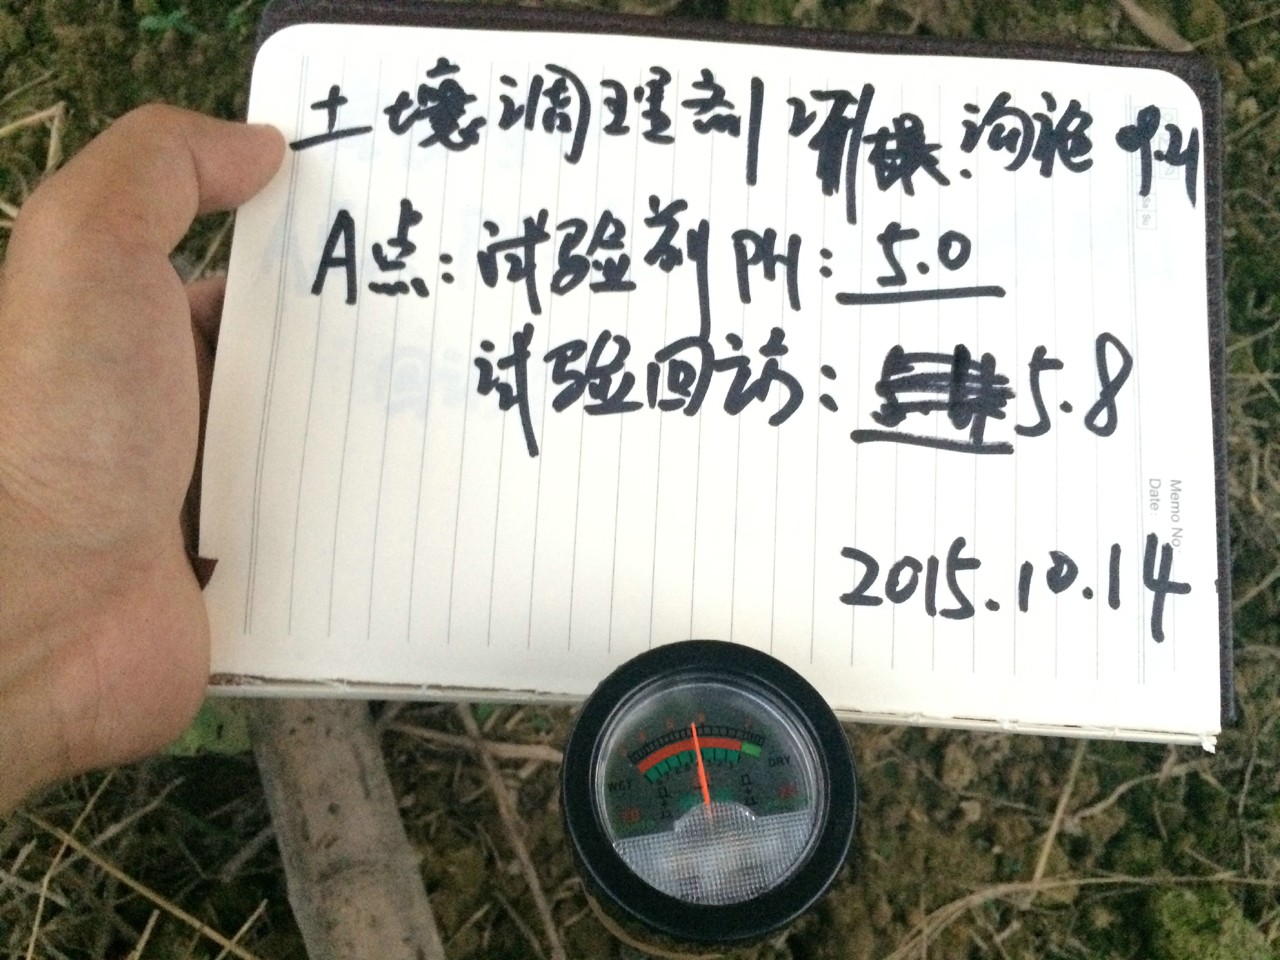 土壤调理剂 沟施
A点：试验前PH：5.0
试验回访：5.8
2015.10.14
Memo No
Date
WET
DRY